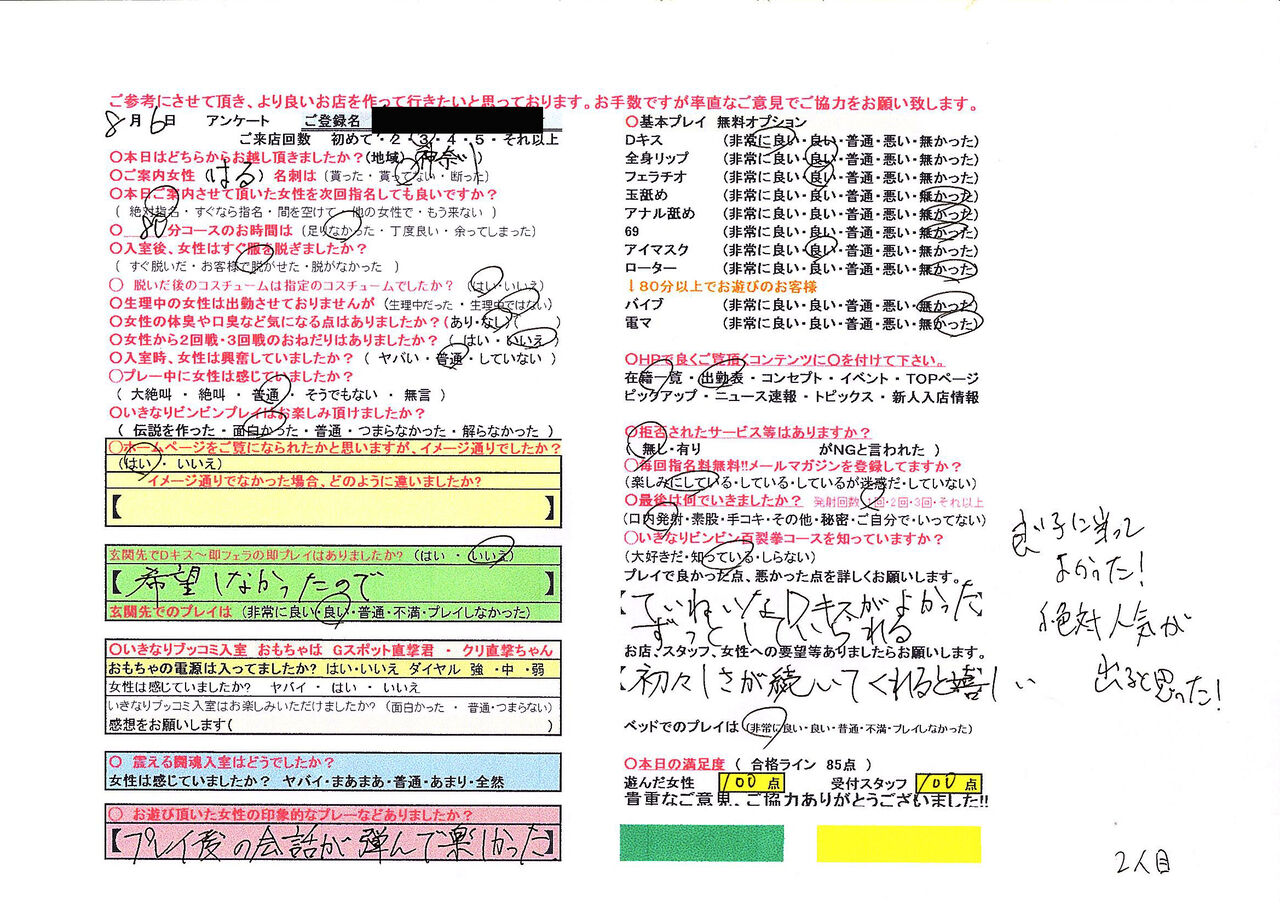 ご参考にさせて頂き、より良いお店を作って行きたいと思っております。お手数ですが率直なご意見でご協力をお願い致します。
8月6日 アンケート ご登録名
ご来店回数 初めて・2・3・4・5・それ以上
〇本日はどちらからお越し頂きましたか?(地域 神奈川 )
〇ご案内女性 (はる) 名刺は (貰った・貰ってない・断った)
〇本日ご案内させて頂いた女性を次回指名しても良いですか?
( 絶対指名・すぐなら指名・間を空けて・他の女性で・もう来ない )
〇 80分コースのお時間は (足りなかった・丁度良い・余ってしまった)
〇入室後、女性はすぐ服を脱ぎましたか?
( すぐ脱いだ・お客様で脱がせた・脱がなかった )
〇 脱いだ後のコスチュームは指定のコスチュームでしたか? (はい・いいえ)
〇生理中の女性は出勤させておりませんが (生理中だった・生理中ではない)
〇女性の体臭や口臭など気になる点はありましたか?(あり・なし)( )
〇女性から2回戦・3回戦のおねだりはありましたか? ( はい・いいえ )
〇入室時、女性は興奮していましたか? ( ヤバい・普通・していない )
〇プレー中に女性は感じていましたか?
( 大絶叫・絶叫・普通・そうでもない・無言 )
〇いきなりビンビンプレーはお楽しみ頂けましたか?
( 伝説を作った・面白かった・普通・つまらなかった・解らなかった )
〇ホームページをご覧になられたかと思いますが、イメージ通りでしたか?
(はい・いいえ)
イメージ通りでなかった場合、どのように違いましたか?
【 】
玄関先でDキス～即フェラの即プレイはありましたか? (はい・いいえ)
【 希望しなかったので 】
玄関先でのプレイは (非常に良い・良い・普通・不満・プレイしなかった)
〇いきなりブッコミ入室 おもちゃは Gスポット直撃君・クリ直撃ちゃん
おもちゃの電源は入ってましたか? はい・いいえ ダイヤル 強・中・弱
女性は感じていましたか? ヤバイ・はい・いいえ
いきなりブッコミ入室はお楽しみいただけましたか? (面白かった・普通・つまらない)
感想をお願いします( )
〇 震える闘魂入室はどうでしたか?
女性は感じていましたか? ヤバイ・まあまあ・普通・あまり・全然
〇 お遊び頂いた女性の印象的なプレーなどありましたか?
【プレイ後の会話が弾んで楽しかった】
〇基本プレイ 無料オプション
Dキス (非常に良い・良い・普通・悪い・無かった)
全身リップ (非常に良い・良い・普通・悪い・無かった)
フェラチオ (非常に良い・良い・普通・悪い・無かった)
玉舐め (非常に良い・良い・普通・悪い・無かった)
アナル舐め (非常に良い・良い・普通・悪い・無かった)
69 (非常に良い・良い・普通・悪い・無かった)
アイマスク (非常に良い・良い・普通・悪い・無かった)
ローター (非常に良い・良い・普通・悪い・無かった)
↓80分以上でお遊びのお客様
バイブ (非常に良い・良い・普通・悪い・無かった)
電マ (非常に良い・良い・普通・悪い・無かった)
〇HPで良くご覧頂くコンテンツに〇を付けて下さい。
在籍一覧・出勤表・コンセプト・イベント・TOPページ
ピックアップ・ニュース速報・トピックス・新人入店情報
〇拒否されたサービス等はありますか?
( 無し・有り がNGと言われた )
〇毎回指名料無料!!メールマガジンを登録してますか?
(楽しみにしている・している・しているが迷惑だ・していない)
〇最後は何でいきましたか? 発射回数 1回・2回・3回・それ以上
(口内発射・素股・手コキ・その他・秘密・ご自分で・いってない)
〇いきなりビンビン百裂拳コースを知っていますか?
(大好きだ・知っている・しらない)
プレイで良かった点、悪かった点を詳しくお願いします。
【ていねいなDキスがよかった
ずっとしていられる
お店、スタッフ、女性への要望等ありましたらお願いします。
【初々しさが続いてくれると嬉しい
ベッドでのプレイは (非常に良い・良い・普通・不満・プレイしなかった)
〇本日の満足度 ( 合格ライン 85点 )
遊んだ女性 100 点 受付スタッフ 100 点
貴重なご意見、ご協力ありがとうございました!!
良い子に当って
よかった!
絶対人気が
出ると思った!
2人目